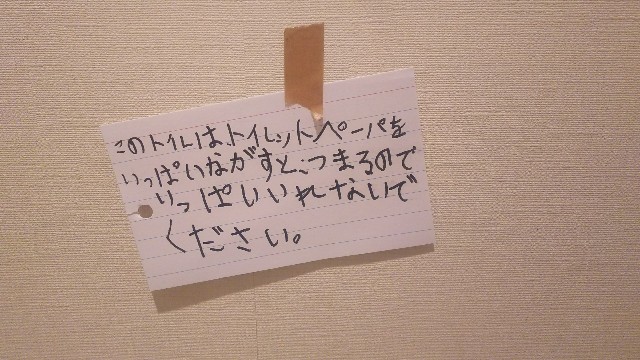 このトイレは、トイレットペーパを
いっぱいながすと、つまるので
いっぱいいれないで
ください。